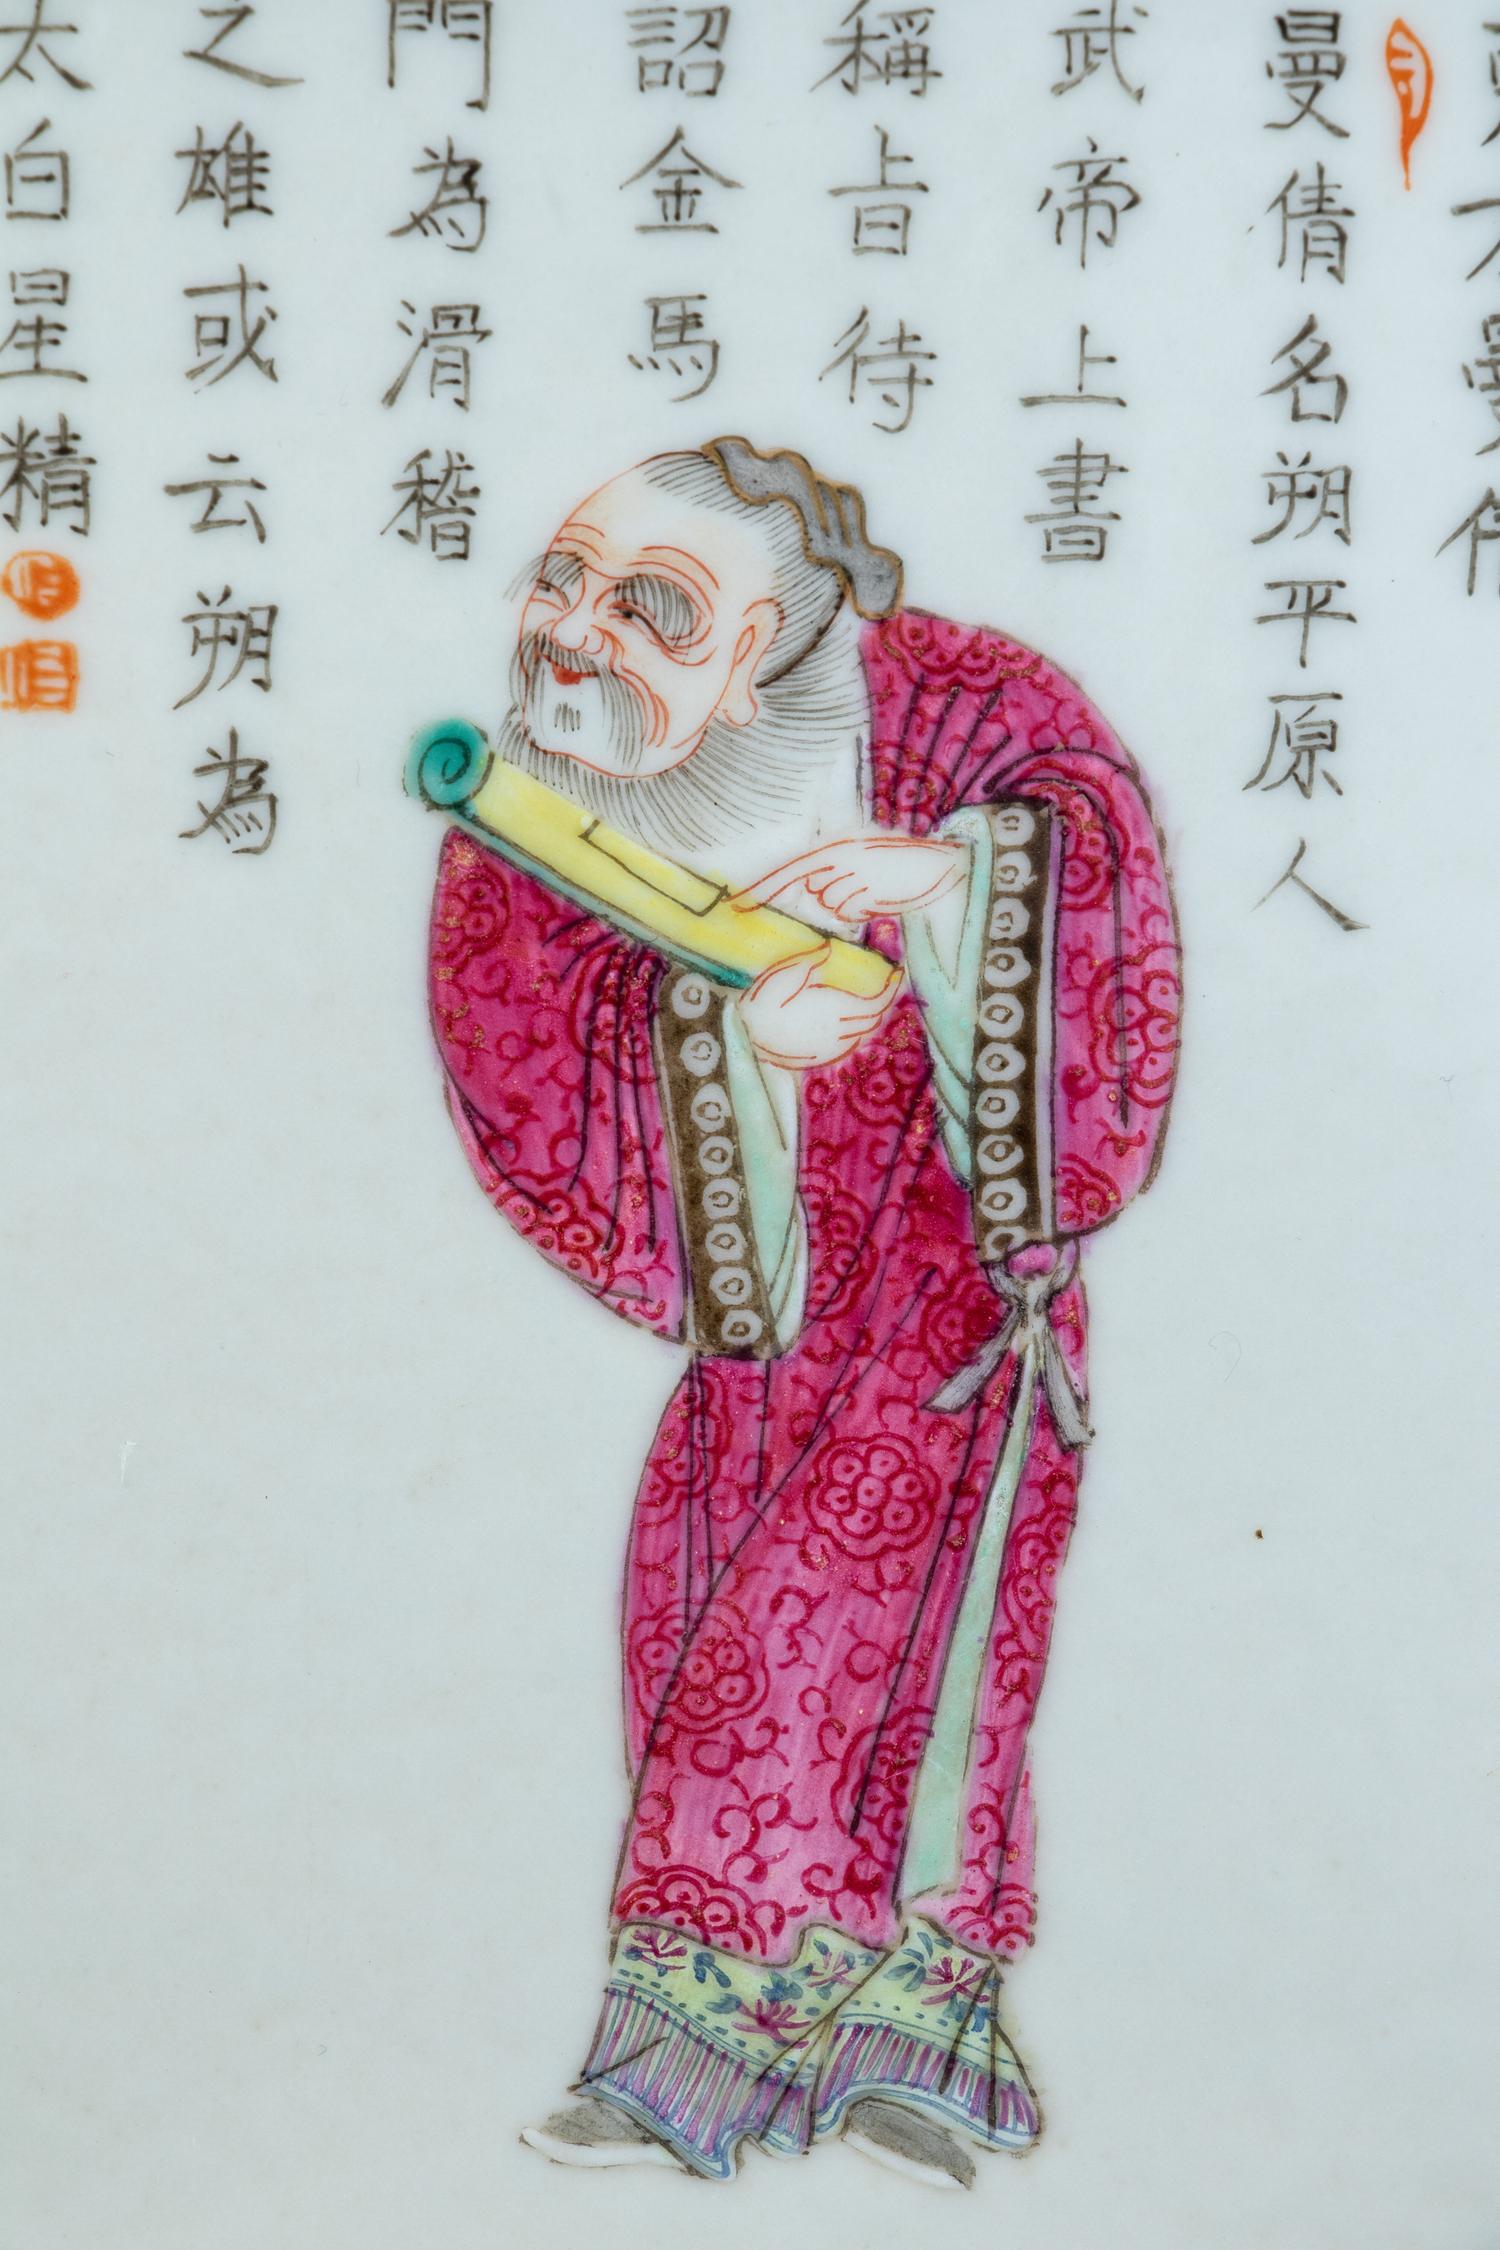 曼倩名朔平原人
武帝上書
稱旨待
詔金馬
門為滑稽
之雄或云朔為
太白星精